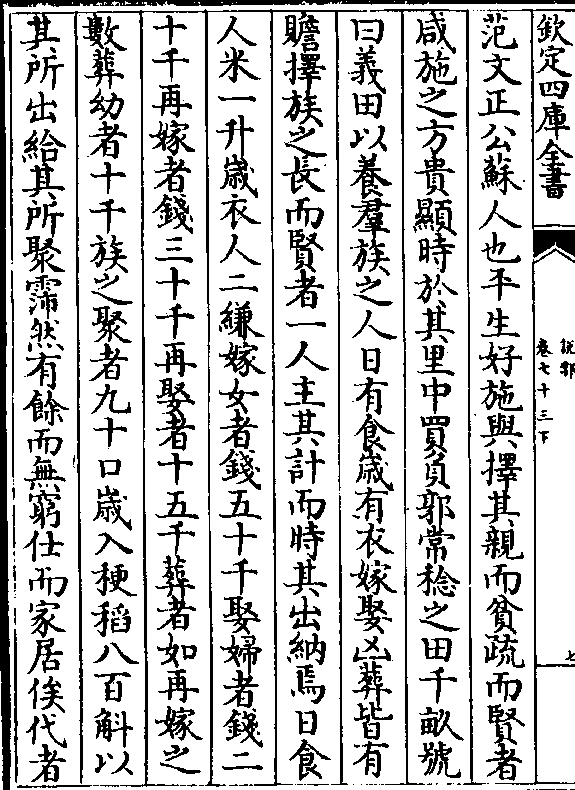 欽定四庫全書
說郛
卷七十三下
七
范文正公蘇人也平生好施與擇其親而貧疏而賢者
咸施之方貴顯時於其里中買負郭常稔之田千畝號
曰義田以養羣族之人日有食歳有衣嫁娶凶葬皆有
贍擇族之長而賢者一人主其計而時其出納焉日食
人米一升歳衣人二縑嫁女者錢五十千娶婦者錢二
十千再嫁者錢三十千再娶者十五千葬者如再嫁之
數葬幼者十千族之聚者九十口歳入稉稻八百斛以
其所出給其所聚霈然有餘而無窮仕而家居俟代者